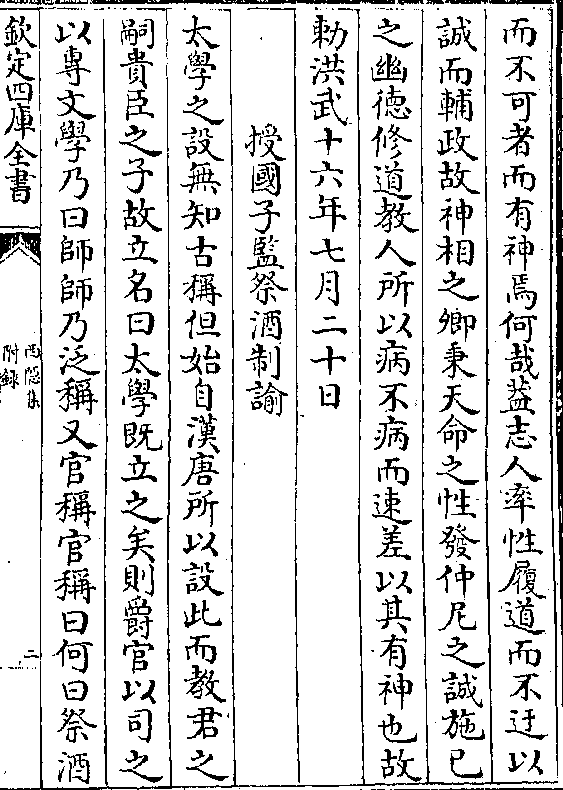 而不可者而有神焉何哉葢志人率性履道而不迂以
誠而輔政故神相之卿秉天命之性發仲尼之誠施已
之幽德修道教人所以病不病而速差以其有神也故
勅洪武十六年七月二十日
授國子監祭酒制諭
太學之設無知古稱但始自漢唐所以設此而教君之
嗣貴臣之子故立名曰太學既立之矣則爵官以司之
以專文學乃曰師師乃泛稱又官稱官稱曰何曰祭酒
欽定四庫全書
西隱集
附錄
二